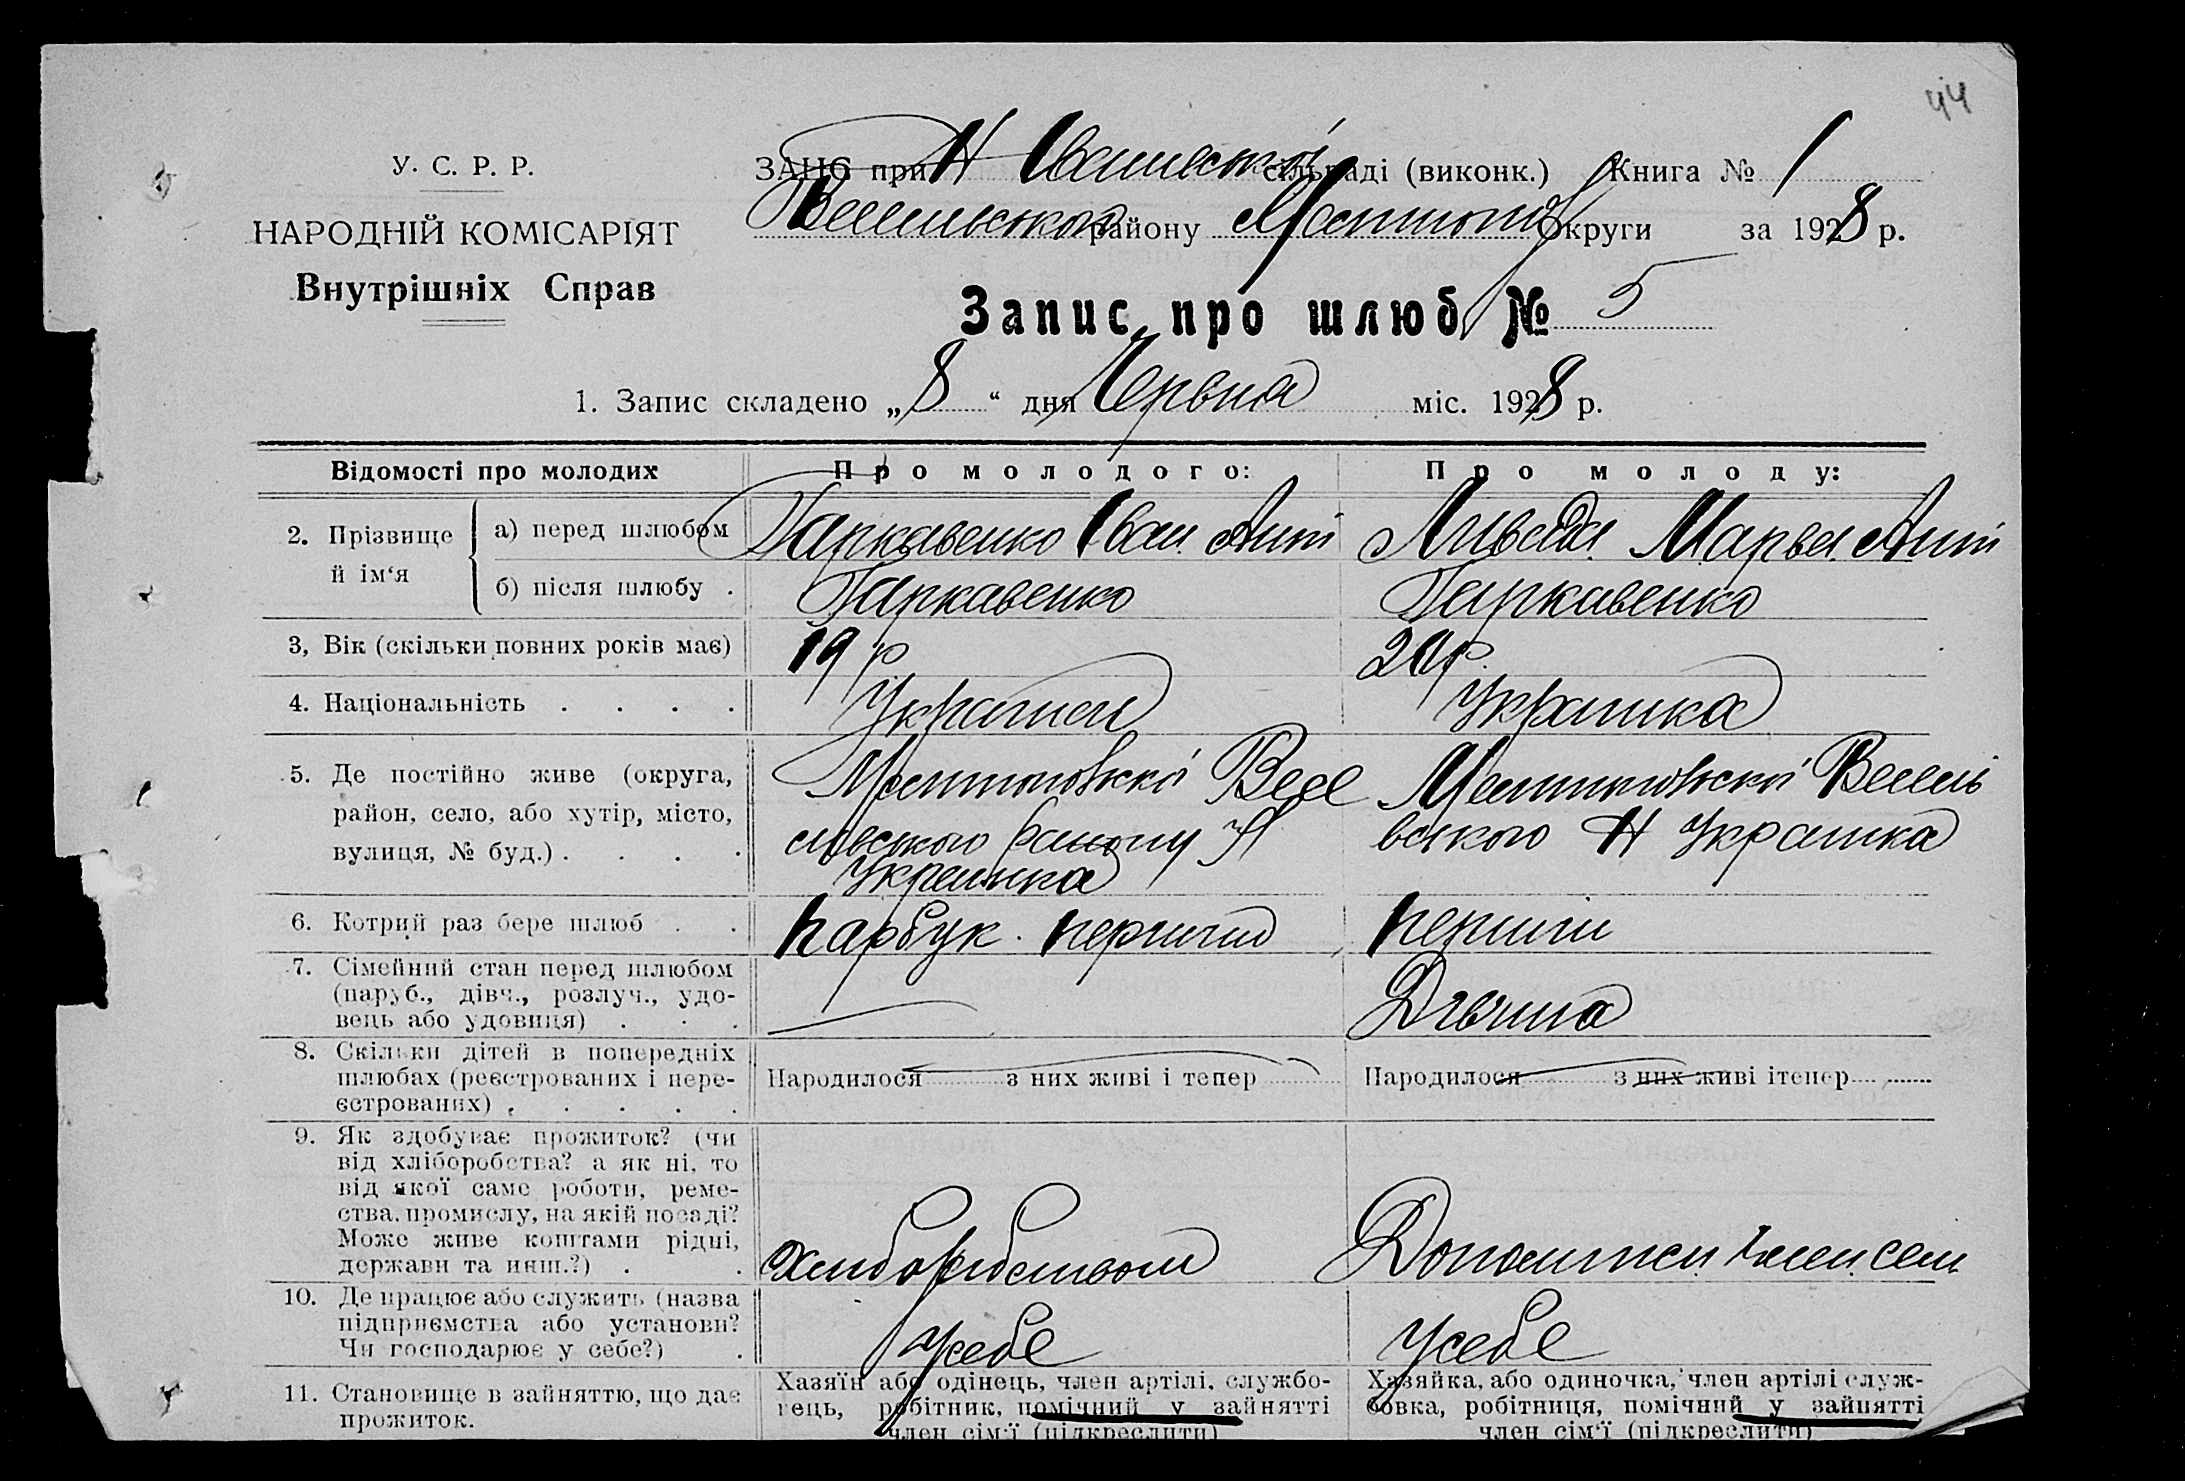 44
У. С. Р. Р.
НАРОДНІЙ КОМІСАРІЯТ
Внутрішніх Справ
ЗАНС при Н сільраді (виконк.) Книга № 1
району Округи за 1928 р.
Запис про шлюб № 5
1. Запис складено „8“ дня Червня міс. 1928 р.
Відомості про молодих
Про молодого:
Про молоду:
2. Прізвище й ім‘я
а) перед шлюбом
Гаркавенко Іван Ант
Ливада Марья Ант
б) після шлюбу .
Гаркавенко
Гаркавенко
3, Вік (скільки повних років має)
19 р
20 р.
4. Національність . . . .
Українец
Украинка
5. Де постійно живе (округа,
район, село, або хутір, місто,
вулиця, № буд.) . . . .
Весе
ловського району Н
Украинка
Веселів
вського Н Украинка
6. Котрий раз бере шлюб . .
парубук. первий
перший
7. Сімейний стан перед шлюбом
(паруб., дівч., розлуч., удо-
вець або удовиця) . . .
Дівчина
8. Скільки дітей в попередніх
шлюбах (реєстрованих і нере-
єстрованих) . . . . .
Народилося з них живі і тепер
Народилося з них живі ітепер
9. Як здобуває прожиток? (чи
від хліборобства? а як ні, то
від якої саме роботи, реме-
ства, промислу, на якій посаді?
Може живе коштами рідні,
держави та инш.?) . .
хліборобством
член сем
10. Де працює або служить (назва
підприємства або установи?
Чи господарює у себе?) .
У себе
У себе
11. Становище в зайняттю, що дає
прожиток.
Хазяїн або одінець, член артілі, службо-
вець, робітник, помічний у зайнятті
член сім‘ї (підкреслити)
Хазяйка, або одиночка, член артілі служ-
бовка, робітниця, помічний у зайнятті
член сім‘ї (підкреслити)